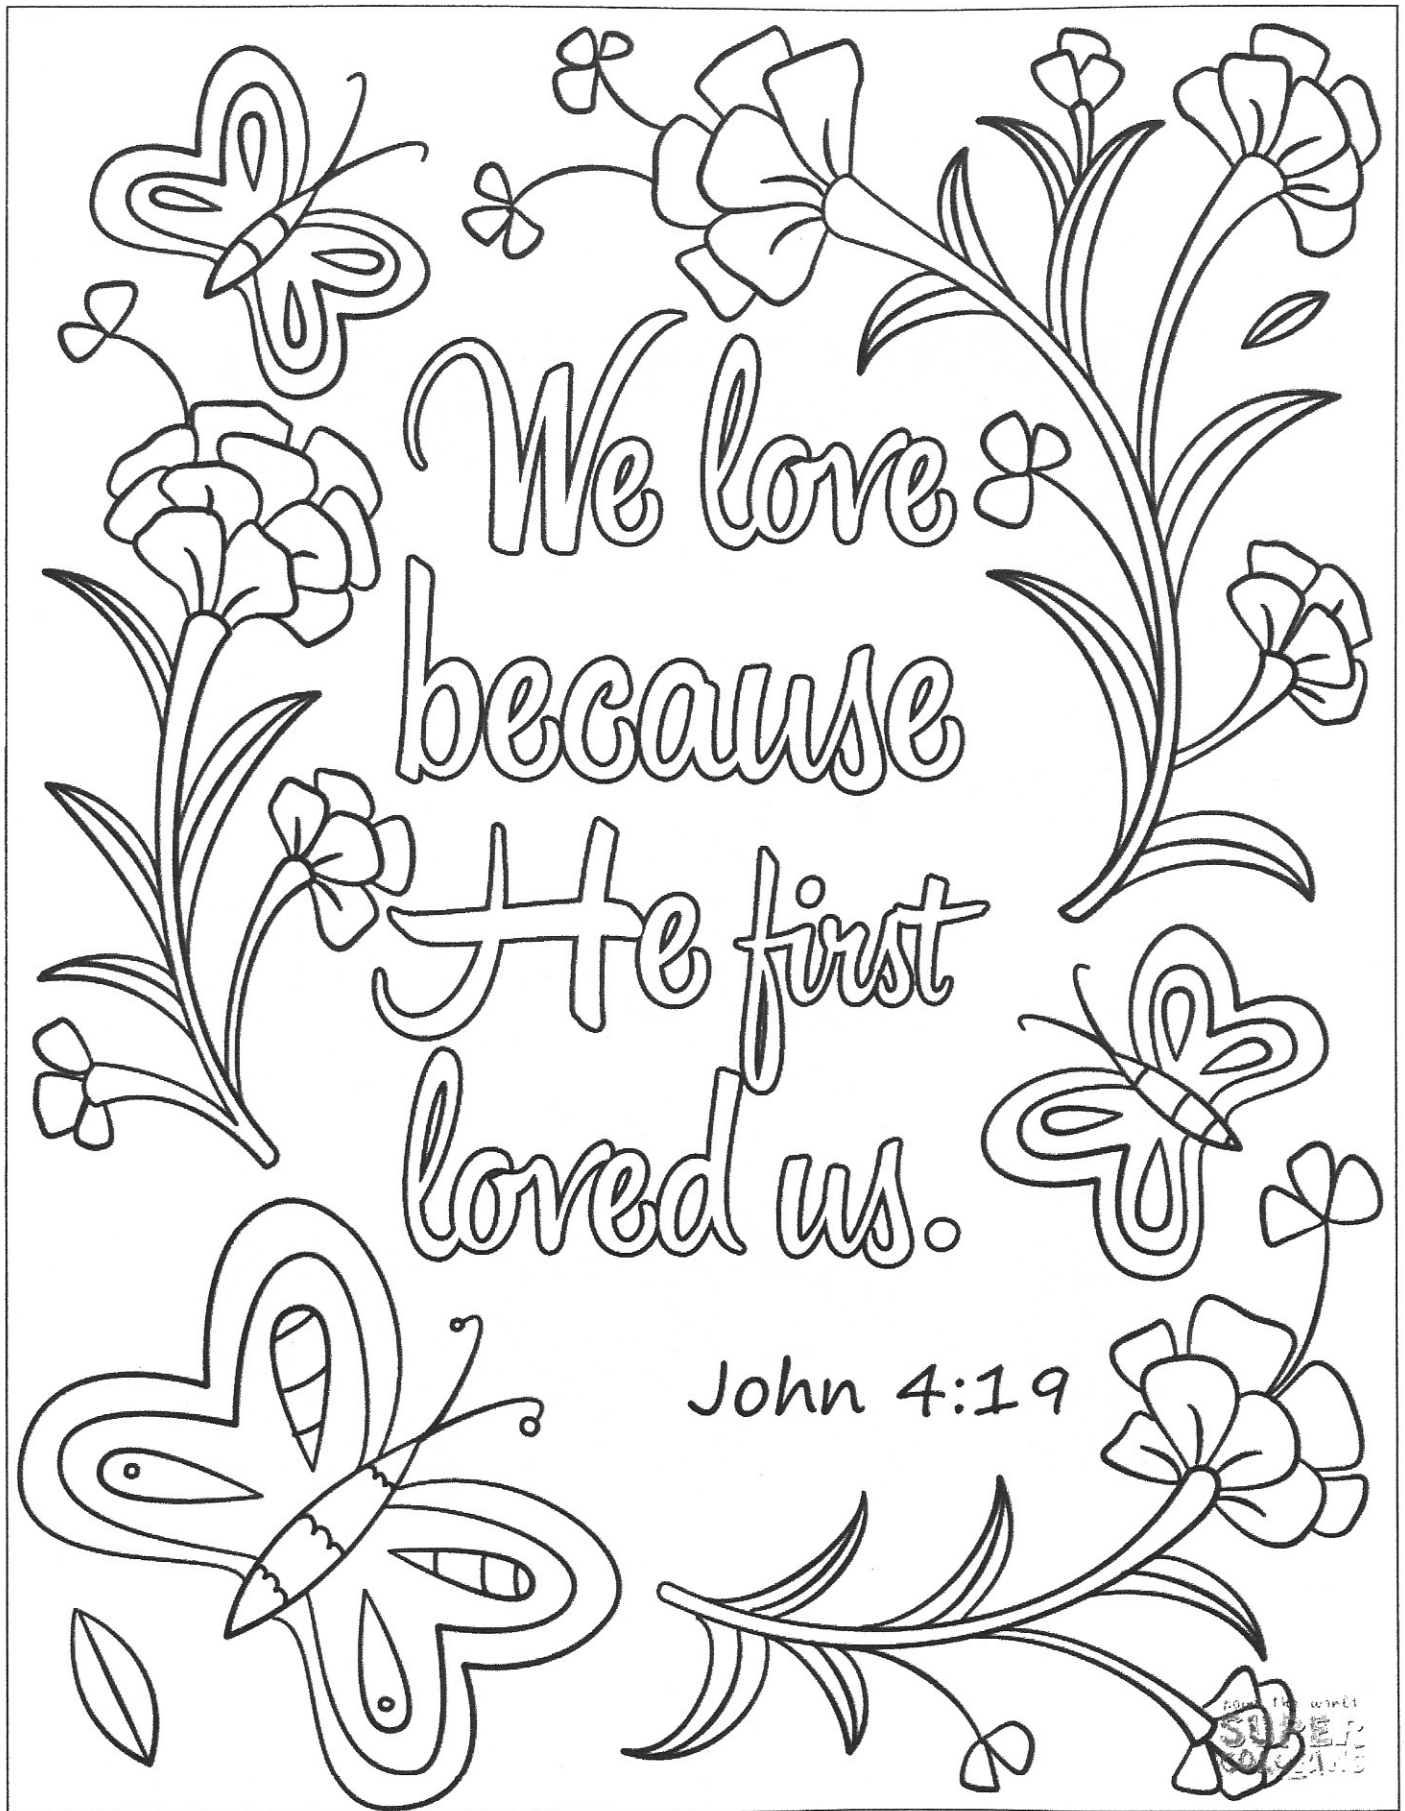 We love
because
He first
loved us.
John 4:19
SUPER